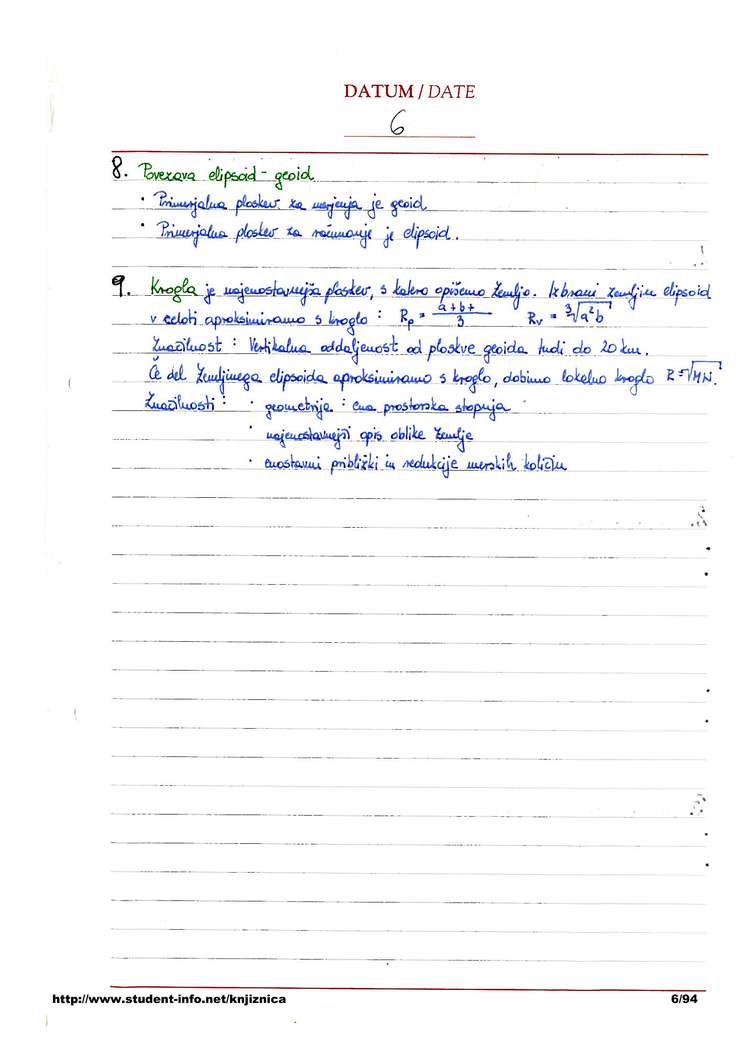 DATUM / DATE
6
8. Povezava elipsoid - geoid
· Primerjalna ploskev za merjenja je geoid
· Primerjalna ploskev za računanje je elipsoid.
9. Krogla je najenostavnejša ploskev, s katero opišemo Zemljo. Izbrani zemljin elipsoid
v celoti aproksimiramo s kroglo : Rp = (a+b+)/3 Rv = ∛(a²b)
Značilnost : Vertikalna oddaljenost od ploskve geoida tudi do 20 km.
Če del Zemljinega elipsoida aproksimiramo s kroglo, dobimo lokalno kroglo R=√MN.
Značilnosti : · geometrija : ena prostorska stopnja
· najenostavnejši opis oblike Zemlje
· enostavni približki in redukcije merskih količin
http://www.student-info.net/knjiznica 6/94